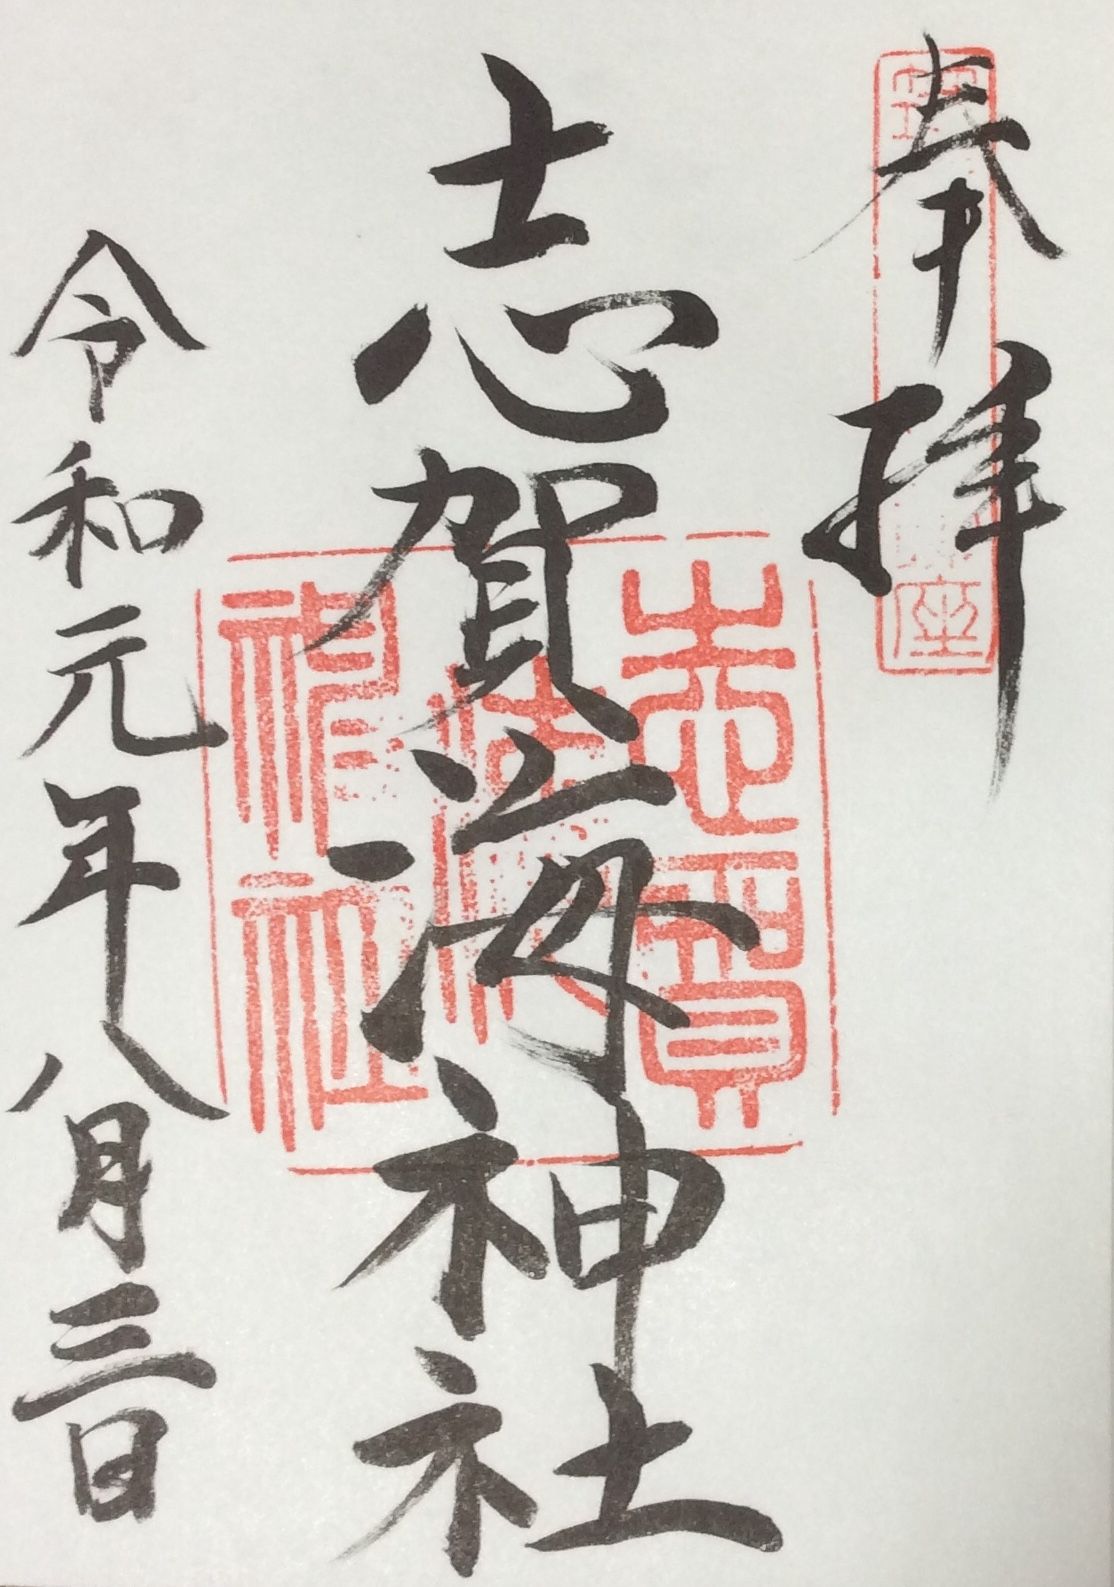 奉拝
志賀海神社
志賀
海
神社
令和元年八月三日